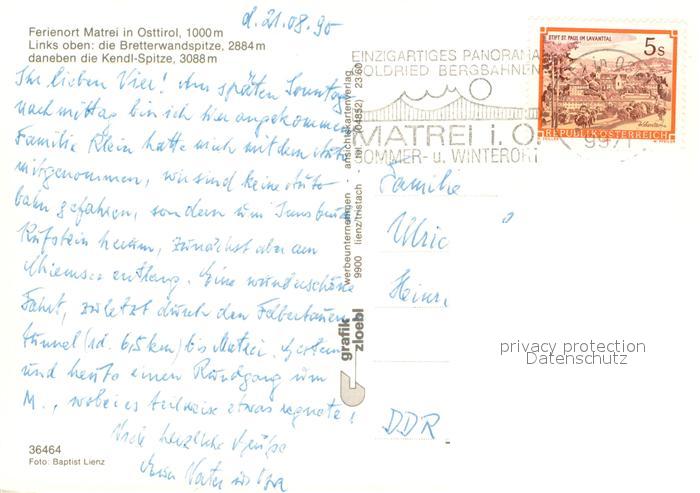 d. 21.08.90
Ferienort Matrei in Osttirol, 1000 m
Links oben: die Bretterwandspitze, 2884 m
daneben die Kendl-Spitze, 3088 m
Ihr lieben Vier! Am späten Sonntag-
nachmittag bin ich hier angekommen
Familie Klein hatte mich mit dem Auto
mitgenommen, wir sind keine Auto-
bahn gefahren, sondern um Innsbruck
Kufstein herum, zunächst aber am
Chiemsee entlang. Eine wunderschöne
Fahrt, zuletzt durch den Felbertauern
tunnel (rd. 6,5 km) bis Matrei. Gestern
und heute einen Rundgang um
M., wobei es teilweise etwas regnete!
Viele herzliche Grüße
Euer Vater und Opa
36464
Foto: Baptist Lienz
grafik
zloebl
werbeunternehmen · ansichtskartenverlag
9900 lienz/tristach · tel. (04852) 23 60
EINZIGARTIGES PANORAMA
GOLDRIED BERGBAHNEN
MATREI i. O.
SOMMER- u. WINTERORT
9971
STIFT ST. PAUL IM LAVANTTAL
5 S
REPUBLIK ÖSTERREICH
Familie
Ulric
Heinr.
DDR
privacy protection
Datenschutz